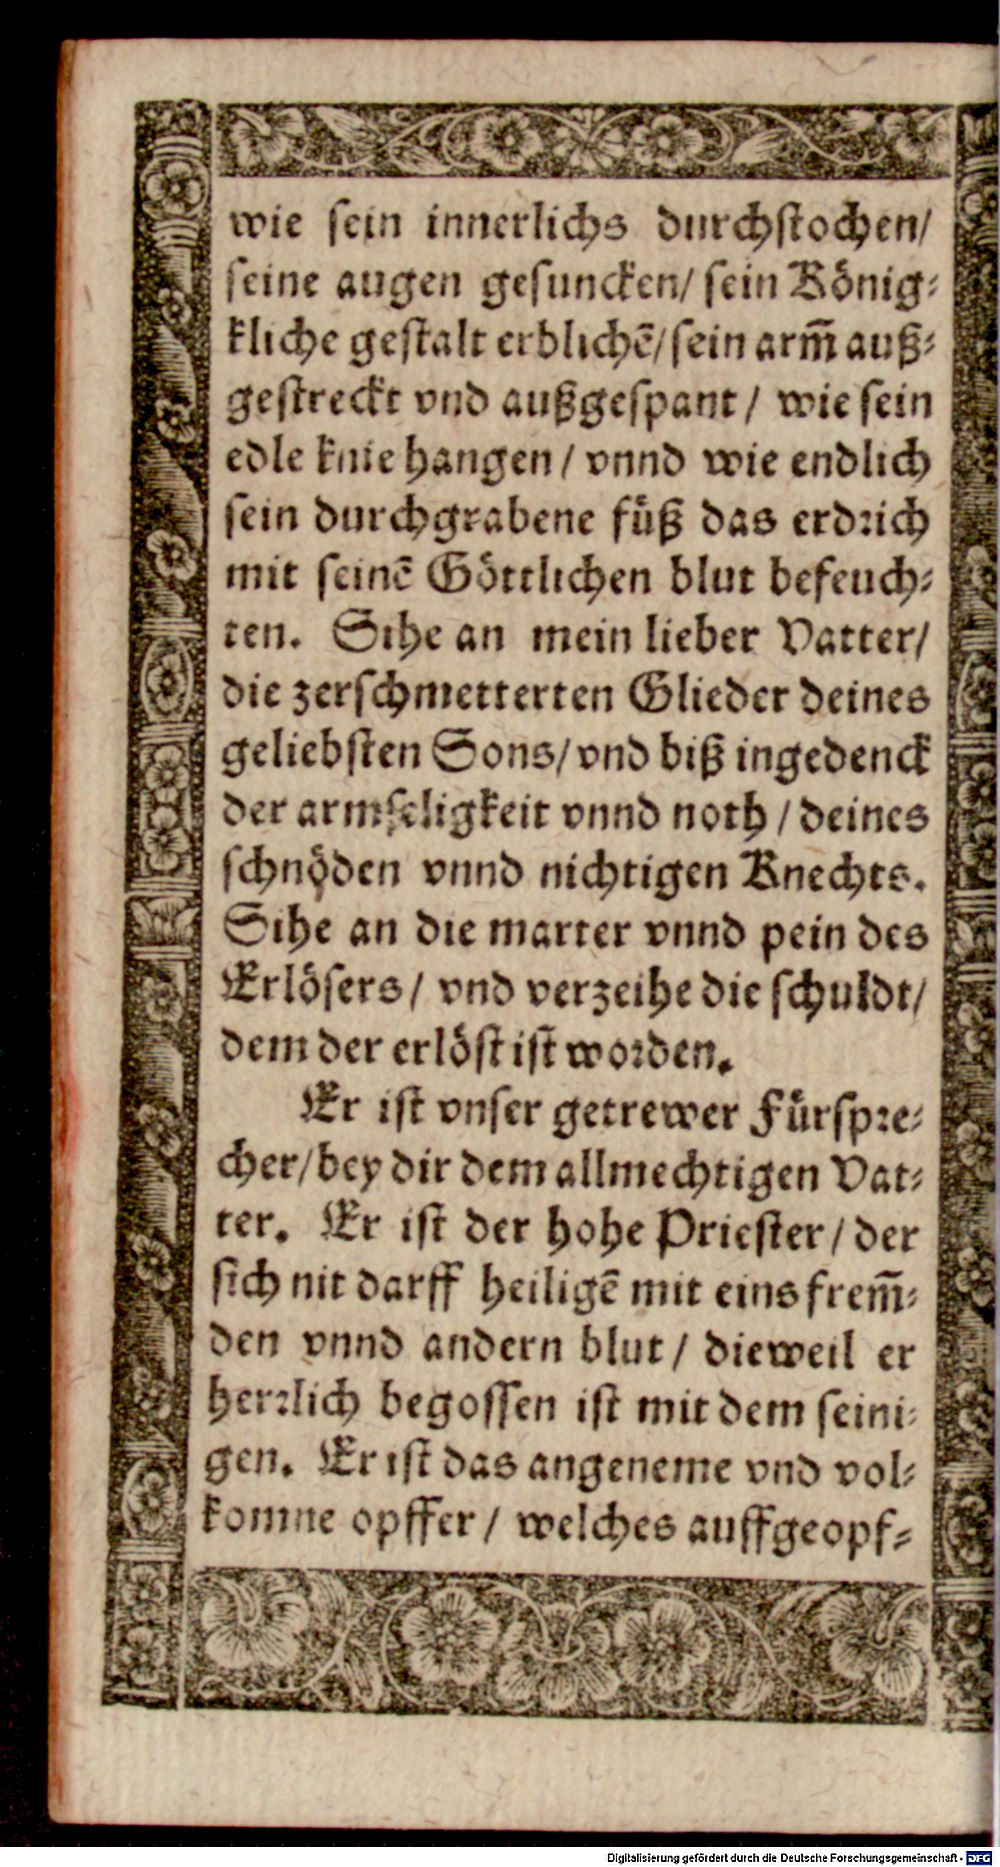 wie sein innerlichs durchstochen/
seine augen gesuncken/ sein König-
kliche gestalt erblichẽ/ sein arm̃ auß-
gestreckt vnd außgespant / wie sein
edle knie hangen / vnnd wie endlich
sein durchgrabene füß das erdrich
mit seinẽ Göttlichen blut befeuch-
ten. Sihe an mein lieber Vatter/
die zerschmetterten Glieder deines
geliebsten Sons/ vnd biß ingedenck
der armseligkeit vnnd noth / deines
schnöden vnnd nichtigen Knechts.
Sihe an die marter vnnd pein des
Erlösers / vnd verzeihe die schuldt/
dem der erlöst ist worden.
Er ist vnser getrewer Fürspre-
cher/ bey dir dem allmechtigen Vat-
ter. Er ist der hohe Priester / der
sich nit darff heiligẽ mit eins frem̃-
den vnnd andern blut / dieweil er
herrlich begossen ist mit dem seini-
gen. Er ist das angeneme vnd vol-
komne opffer / welches auffgeopf-
Digitalisierung gefördert durch die Deutsche Forschungsgemeinschaft - DFG